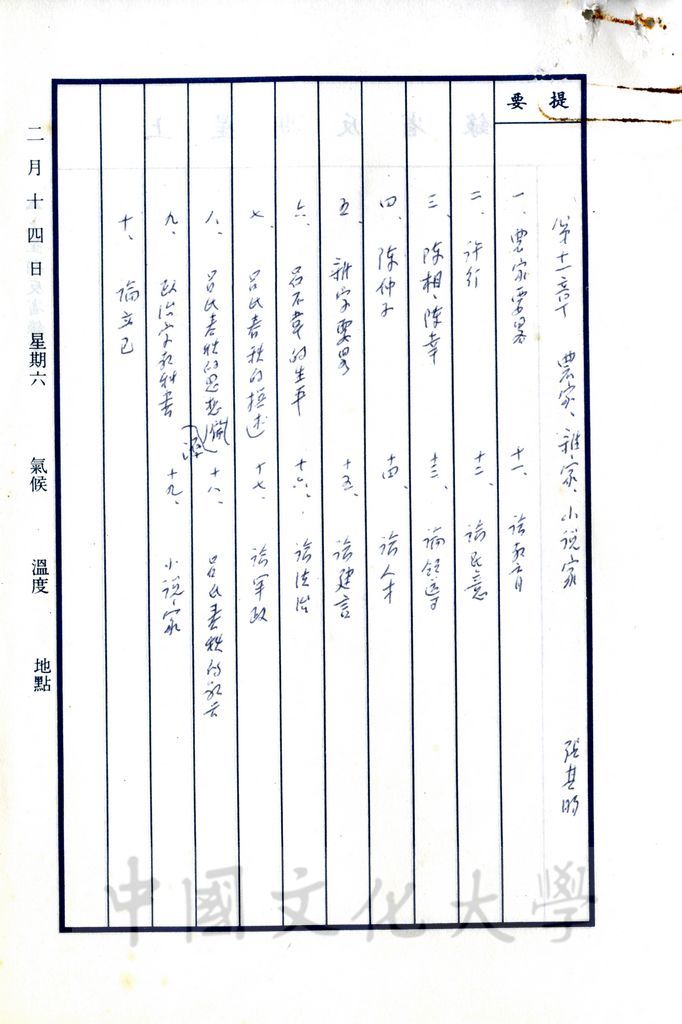 提要
第十一章 農家、雜家、小說家 張其昀
一、農家要畧
二、許行
三、陳相、陳辛
四、陳仲子
五、雜家要畧
六、呂不韋的生平
七、呂氏春秋的描述
八、呂氏春秋的思想淵
九、政治家教科書
十、論立己
十一、論教育
十二、論民意
十三、論領導
十四、論人才
十五、論建言
十六、論法治
十七、論軍政
十八、呂氏春秋的
十九、小說家
二月十四日 星期六 氣候 溫度 地點
中國文化大學